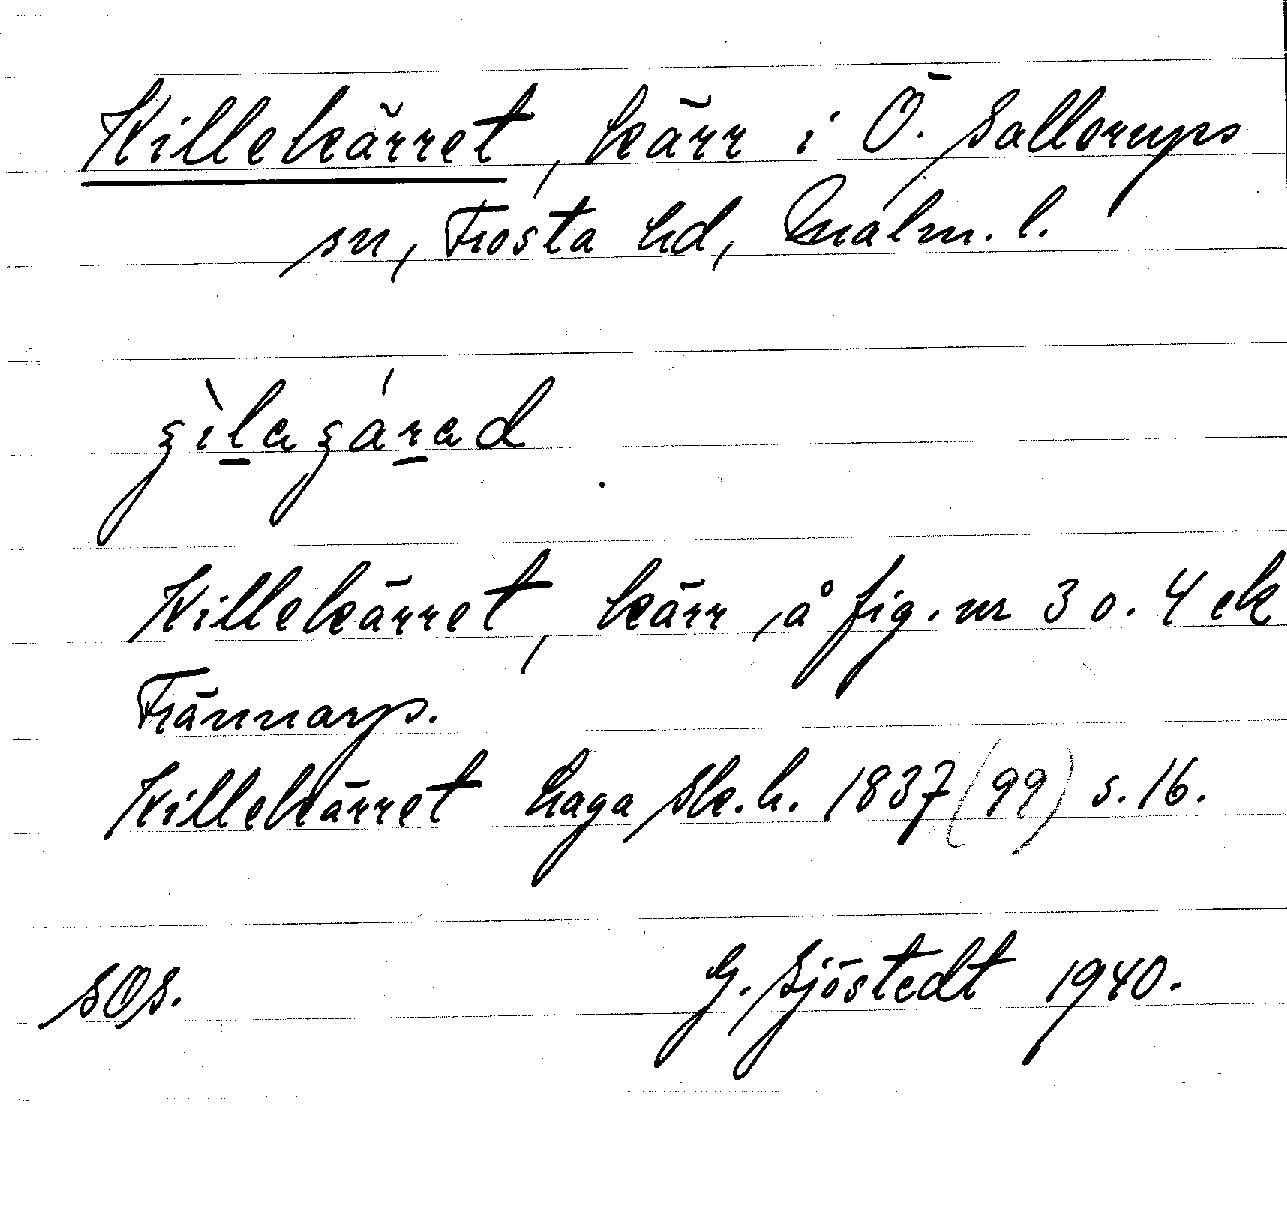 Killekärret, kärr i Ö. Sallerups
sn, Frosta hd, Malm. l.
gìlagárad
Killekärret, kärr, å fig. nr 3 o. 4 ek
Frännarp.
Killekärret haga sk.h. 1837 (99) s. 16.
SOS. G. Sjöstedt 1940.